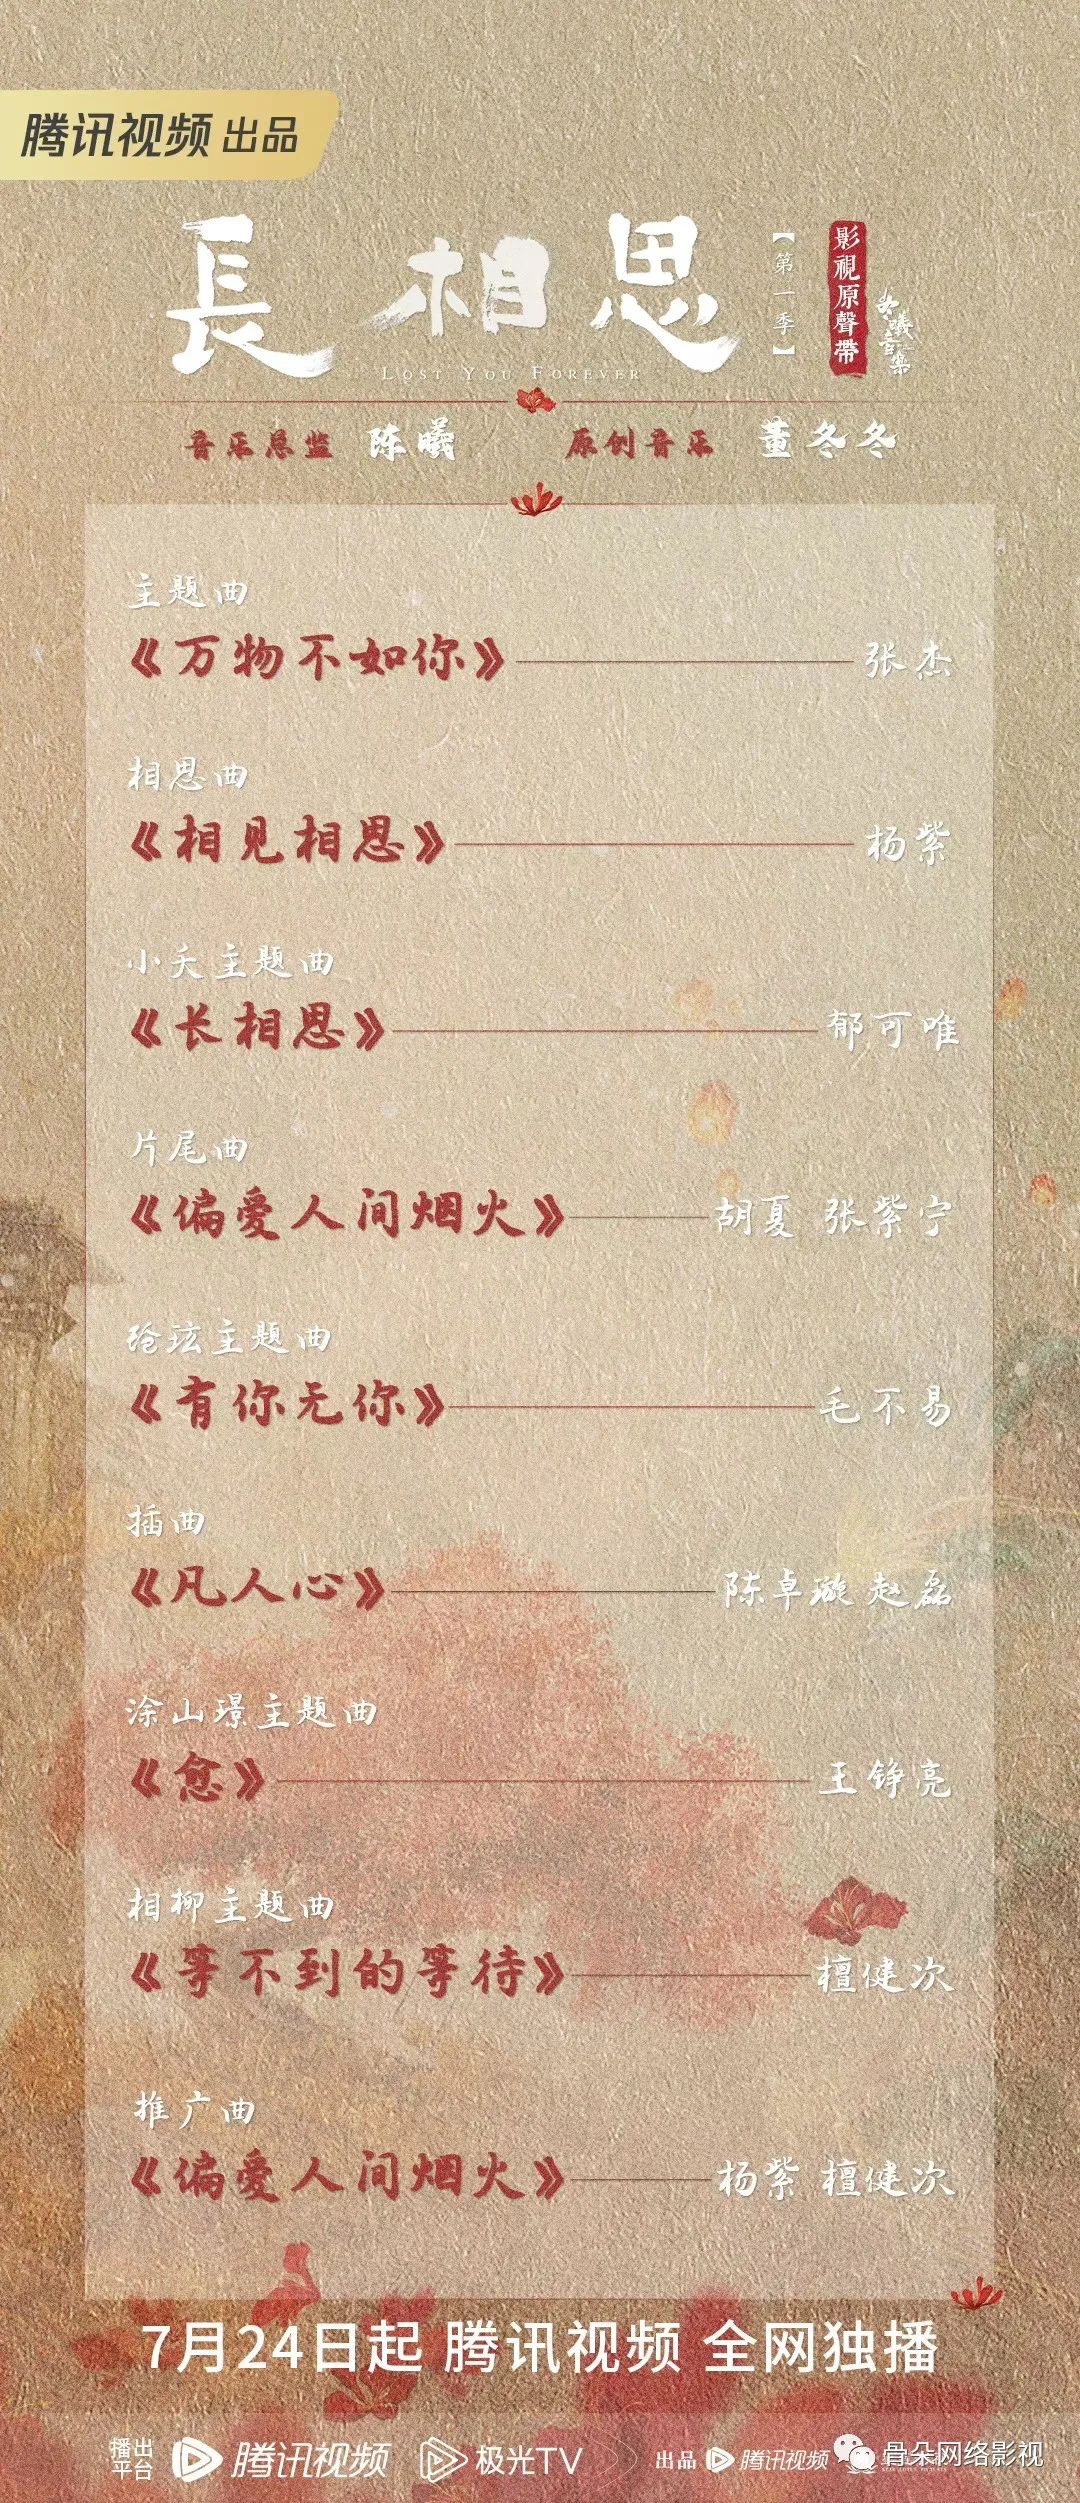 腾讯视频 出品
長相思
【第一季】
影視原聲帶
冬曦音樂
LOST YOU FOREVER
音乐总监 陈曦 原创音乐 董冬冬
主题曲
《万物不如你》 张杰
相思曲
《相见相思》 杨紫
小夭主题曲
《长相思》 郁可唯
片尾曲
《偏爱人间烟火》 胡夏 张紫宁
玱玹主题曲
《有你无你》 毛不易
插曲
《凡人心》 陈卓璇 赵磊
涂山璟主题曲
《愈》 王铮亮
相柳主题曲
《等不到的等待》 檀健次
推广曲
《偏爱人间烟火》 杨紫 檀健次
7月24日起 腾讯视频 全网独播
播出平台 腾讯视频 极光TV 出品 腾讯视频 骨朵网络影视